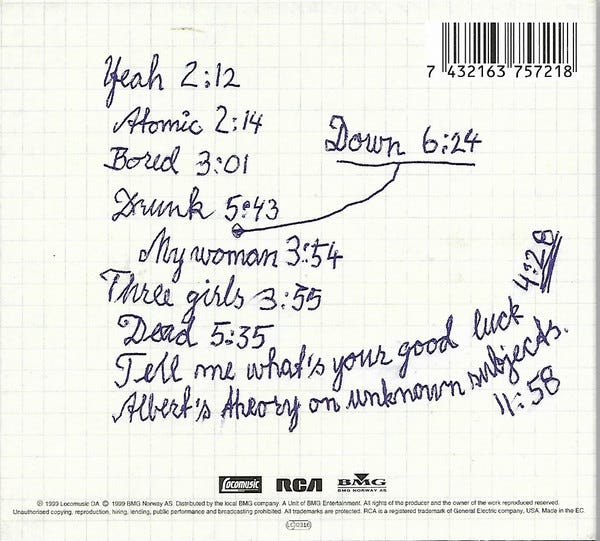 Yeah 2:12
Atomic 2:14
Bored 3:01
Drunk 5:43
Down 6:24
My woman 3:54
Three girls 3:55
Dead 5:35
Tell me what's your good luck 4:28
Albert's theory on unknown subjects. 11:58
7 432163 757218
Locomusic RCA BMG
BMG NORWAY AS
℗ 1999 Locomusic DA © 1999 BMG Norway AS. Distributed by the local BMG company. A Unit of BMG Entertainment. All rights of the producer and the owner of the work reproduced reserved.
Unauthorised copying, reproduction, hiring, lending, public performance and broadcasting prohibited. All trademarks are protected. RCA is a registered trademark of General Electric company, USA. Made in the EC.
LC 0316